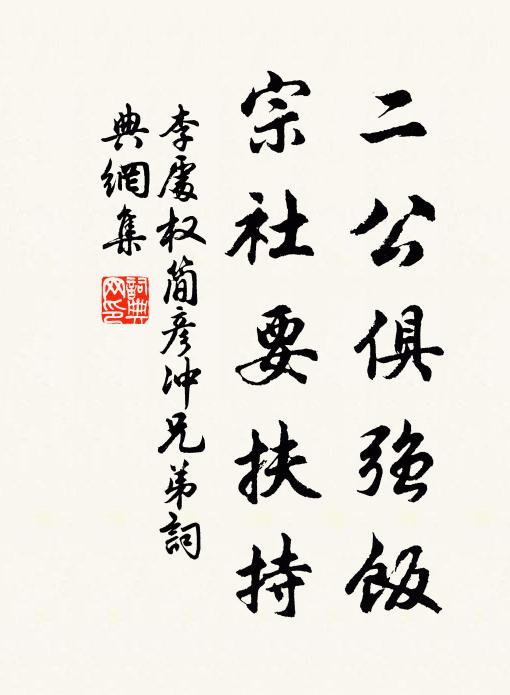 二公俱強飯
宗社要扶持
李處权简彦冲兄弟詞
典網集
詞典
网印